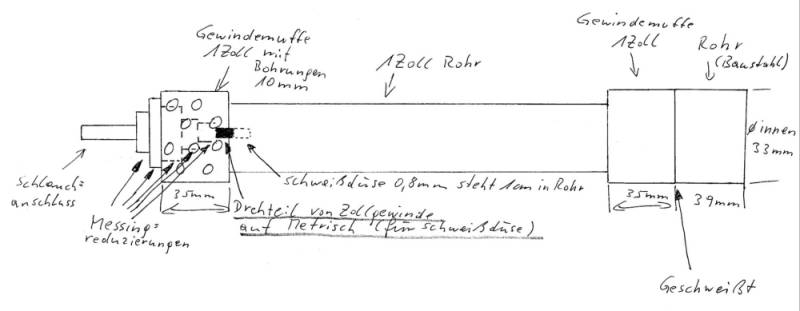 Gewindemuffe
1Zoll mit
Bohrungen
10mm
1Zoll Rohr
Gewindemuffe
1Zoll
Rohr
(Baustahl)
Ø innen
33mm
Schlauch=
anschluss
Messing=
reduzierungen
35mm
Schweißdüse 0,8mm steht 1cm in Rohr
Drehteil von Zollgewinde
auf Metrisch (für Schweißdüse)
35mm
39mm
Geschweißt